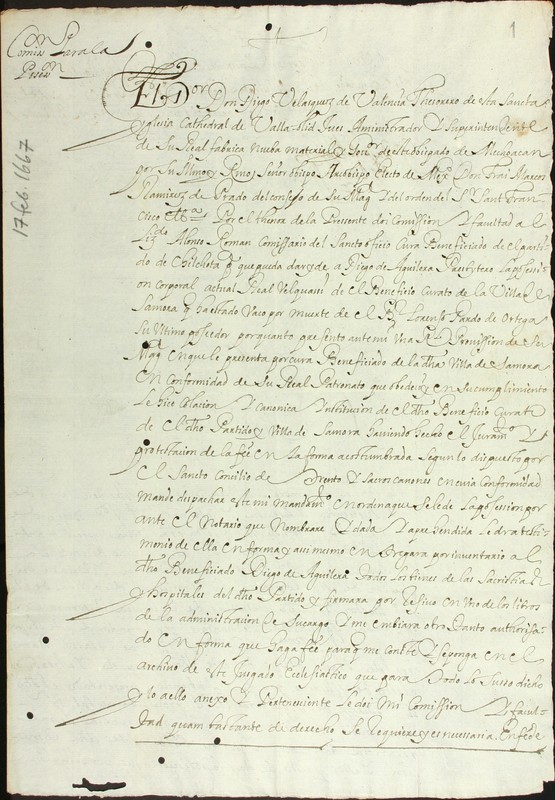 1
Comisⁿ Para la
Posesⁿ
17 feb. 1667
El D.ᵒʳ Don Diego Velasquez de Valencia Thesorero de sta Sancta
yglesia Cathedral de Valla-lid Juez Aministrador Y Superintendente
de Su Real fabrica nueba material, y deste obispado de Mechoacan
por Su Illmo y Rmo Señor obispo Arzobispo Electo de Mexᶜᵒ Don frai Marcos
Ramires de Prado del consejo de Su Magᵈ Y del orden del Sʳ Sant Fran
cisco &ª Por el thenor de la Pressente doi Comission Y facultad a el
Licᵈᵒ Alonso Roman Comissario del Sancto officio Cura Beneficiado de el parti
do de Chilchota pª que pueda dar, y de a Diego de Aguilera Presbytero La possesi
on corporal actual Real Velquassi de el Beneficio Curato de la Villa de
Samora qᵉ ha estado Vaco por muerte de el Bʳ Lorenso Pardo de Ortega
Su Vltimo posseedor por quanto presento ante mi Una Rˡ Provission de Su
Magᵈ En que le presenta por cura Beneficiado de la dha Villa de Samora
En Conformidad de Su Real Patronato que obedeci, y en su cumplimiento
Le hice Colacion Y Canonica Ynstitucion de el dho Beneficio Curato
de el dho Partido y Villa de Samora haviendo hecho el Juramᵗᵒ Y
protestacion de la fee en La forma acostumbrada Segun lo dispuesto por
el Sancto Concilio de Trento Y Sacros canones en cuia Conformidad
mande despachar este mi mandamᵗᵒ en orden a que Se le de La possession por
ante el Notario que Nombrare Y dada Y aprehendida le dara testi-
monio de ella en forma, y assi mismo en tregara por inventario a el
dho Beneficiado Diego de Aguilera todos los bienes de las Sacristia
y hospitales del dho Partido y firmara por Resivo en Uno de los libros
de la administracion de Su cargo Y me embiara otro tanto authorisa-
do en forma que haga fee para qᵉ me conste Y se ponga en el
archivo de este Jusgado Ecclesiastico que para todo lo Susso dicho
y lo a ello anexo Y Perteneciente Le doi Mi Comission Y facul-
tad quam bastante de derecho Se Requiere, y es necessaria. En fe de